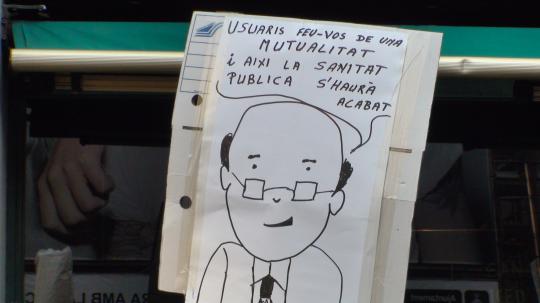 USUARIS FEU-VOS DE UNA
MUTUALITAT
i AIXI LA SANITAT
PUBLICA S'HAURÀ
ACABAT